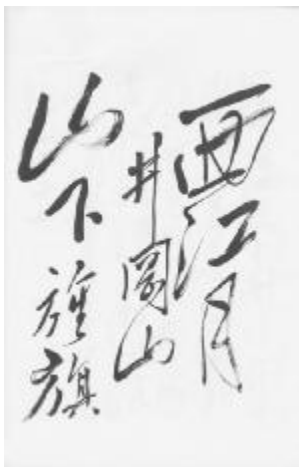 西江月
井冈山
山下旌旗